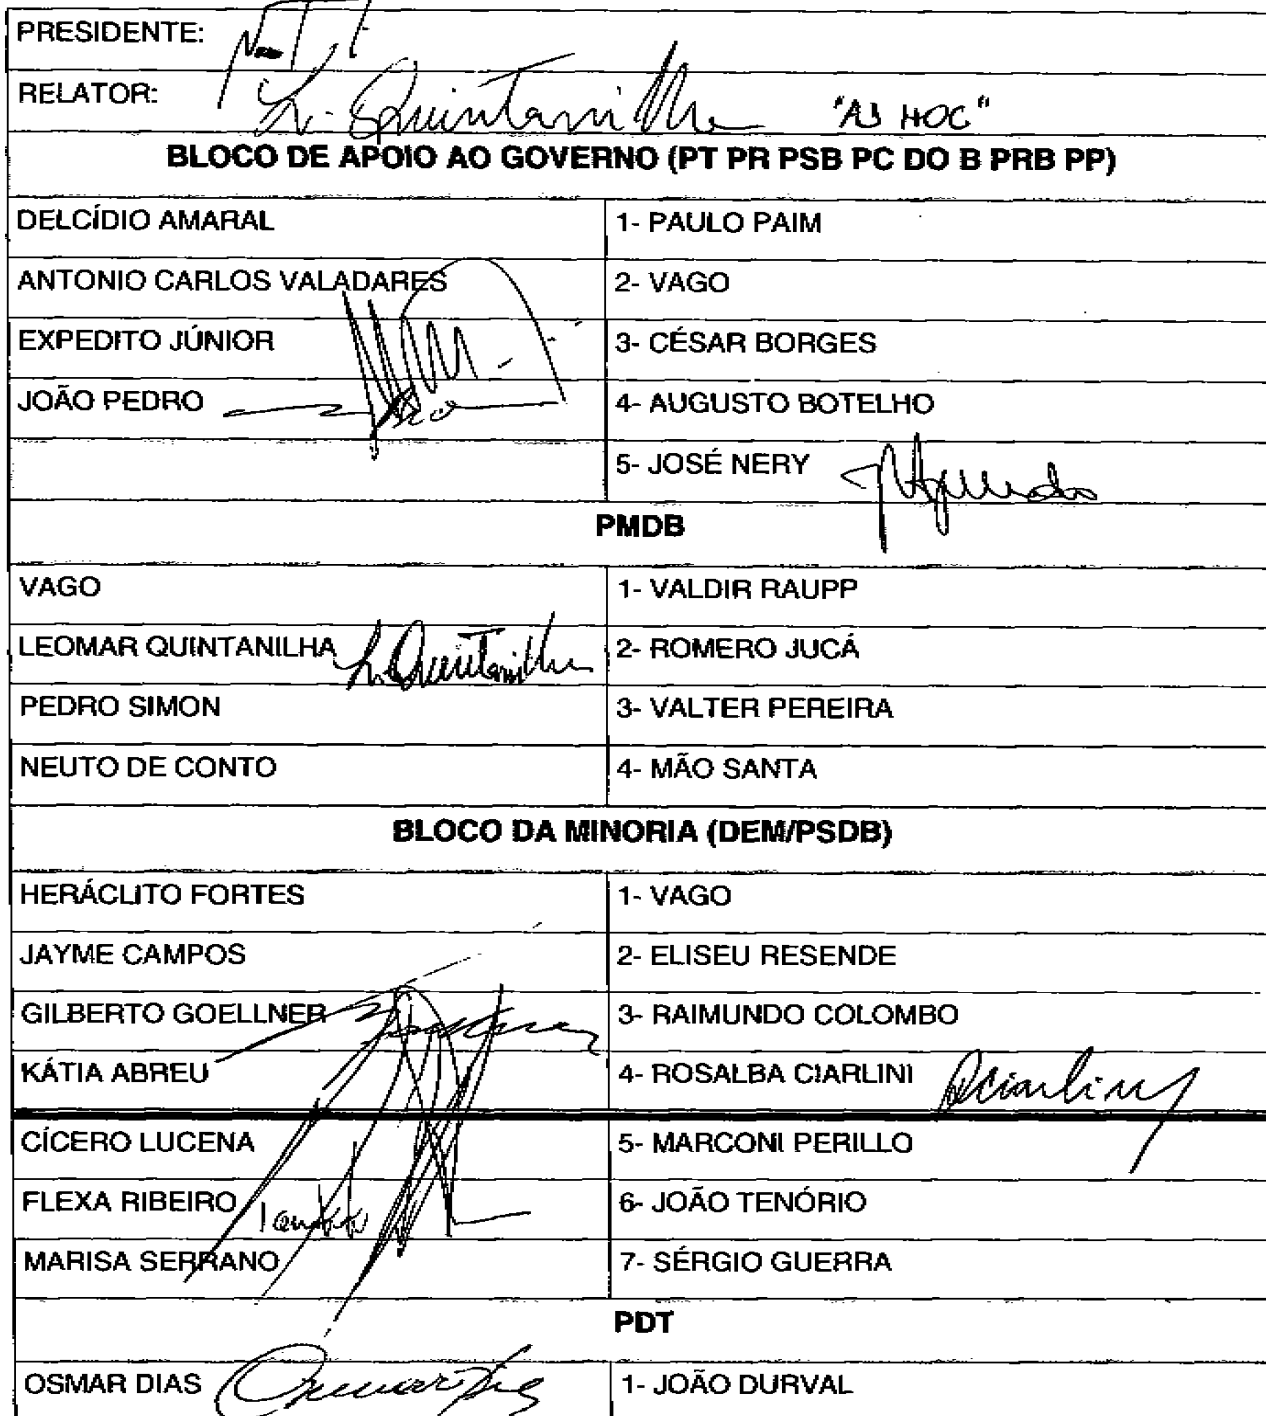 PRESIDENTE:
RELATOR: L. Quintanilha "AD HOC"
BLOCO DE APOIO AO GOVERNO (PT PR PSB PC DO B PRB PP)
DELCÍDIO AMARAL 1- PAULO PAIM
ANTONIO CARLOS VALADARES 2- VAGO
EXPEDITO JÚNIOR 3- CÉSAR BORGES
JOÃO PEDRO 4- AUGUSTO BOTELHO
5- JOSÉ NERY
PMDB
VAGO 1- VALDIR RAUPP
LEOMAR QUINTANILHA L. Quintanilha 2- ROMERO JUCÁ
PEDRO SIMON 3- VALTER PEREIRA
NEUTO DE CONTO 4- MÃO SANTA
BLOCO DA MINORIA (DEM/PSDB)
HERÁCLITO FORTES 1- VAGO
JAYME CAMPOS 2- ELISEU RESENDE
GILBERTO GOELLNER 3- RAIMUNDO COLOMBO
KÁTIA ABREU 4- ROSALBA CIARLINI RCiarlini
CÍCERO LUCENA 5- MARCONI PERILLO
FLEXA RIBEIRO 6- JOÃO TENÓRIO
MARISA SERRANO 7- SÉRGIO GUERRA
PDT
OSMAR DIAS Osmar Dias 1- JOÃO DURVAL